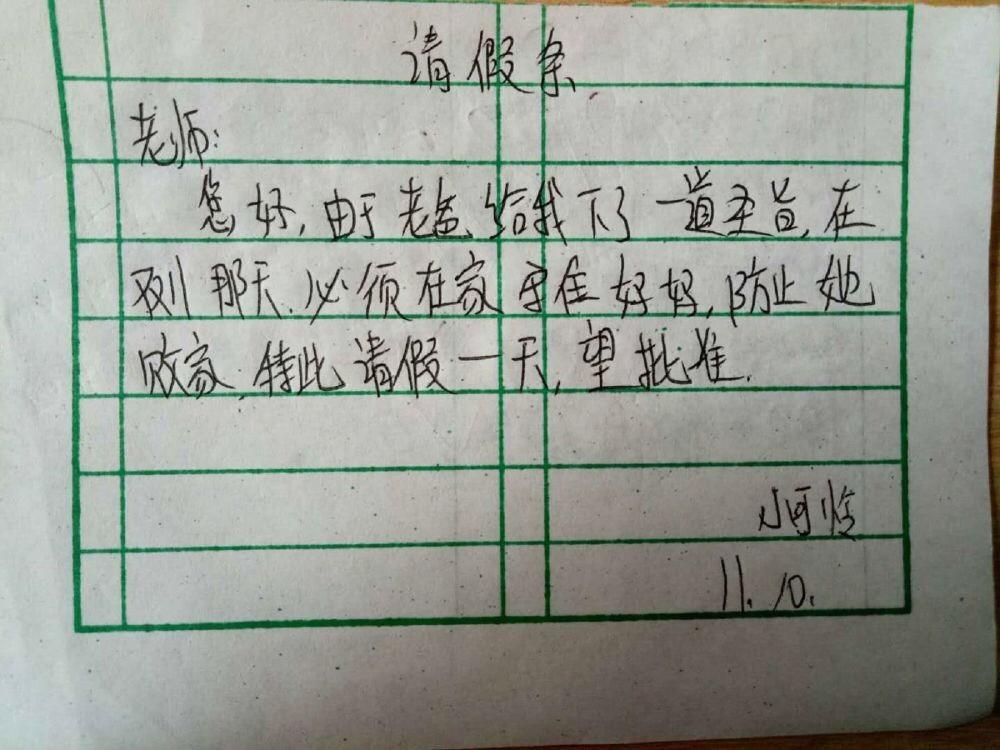 请假条
老师:
您好,由于老爸给我下了一道圣旨,在
双11那天.必须在家守住妈妈,防止她
败家,特此请假一天,望批准.
小可怜
11.10.